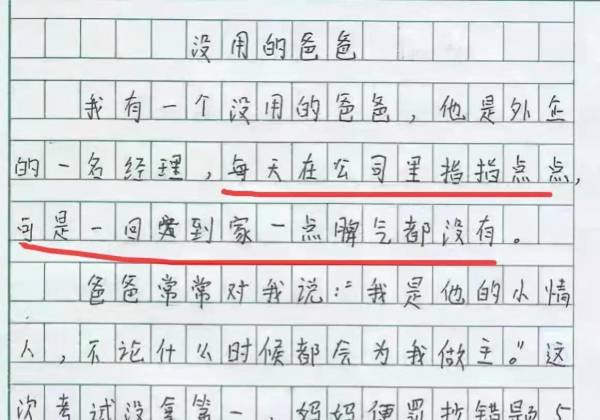 没用的爸爸
我有一个没用的爸爸，他是外企
的一名经理，每天在公司里指指点点，
可是一回到家一点脾气都没有。
爸爸常常对我说：“我是他的小情
人，不论什么时候都会为我做主。”这
次考试没拿第一，妈妈便罚抄错题5